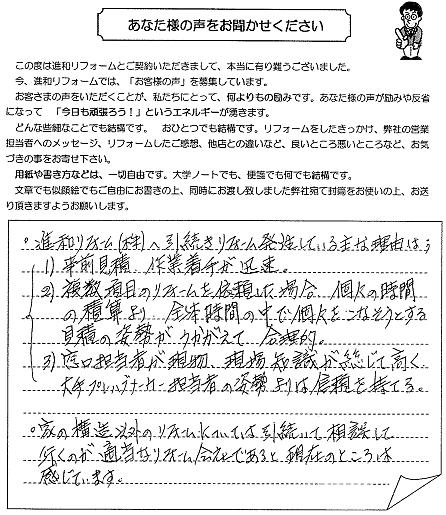 あなた様の声をお聞かせください
この度は進和リフォームとご契約いただきまして、本当に有り難うございました。
今、進和リフォームでは、「お客様の声」を募集しています。
お客さまの声をいただくことが、私たちにとって、何よりもの励みです。あなた様の声が励みや反省
になって　「今日も頑張ろう！」というエネルギーが湧きます。
どんな些細なことでも結構です。　おひとつでも結構です。リフォームをしたきっかけ、弊社の営業
担当者へのメッセージ、リフォームしたご感想、他店との違いなど、良いところ悪いところなど、お気
づきの事をお寄せ下さい。
用紙や書き方などは、一切自由です。大学ノートでも、便箋でも何でも結構です。
文章でも似顔絵でもご自由にお書きの上、同時にお渡し致しました弊社宛て封筒をお使いの上、お送
り頂きますようお願いします。
○進和リフォーム(株)へ引続きリフォーム発注している主な理由は
1) 事前見積、作業着手が迅速。
2) 複数項目のリフォームを依頼した場合、個々の時間
の積算より 全体時間の中で個々をこなそうとする
見積の姿勢がうかがえて 合理的。
3) 窓口担当者が現物、現場知識が総じて高く
担当者の姿勢よりは信頼を持てる。
○家の構造以外のリフォームについては引続いて相談して
行くのが適当なリフォーム会社であると現在のところは
感じています。